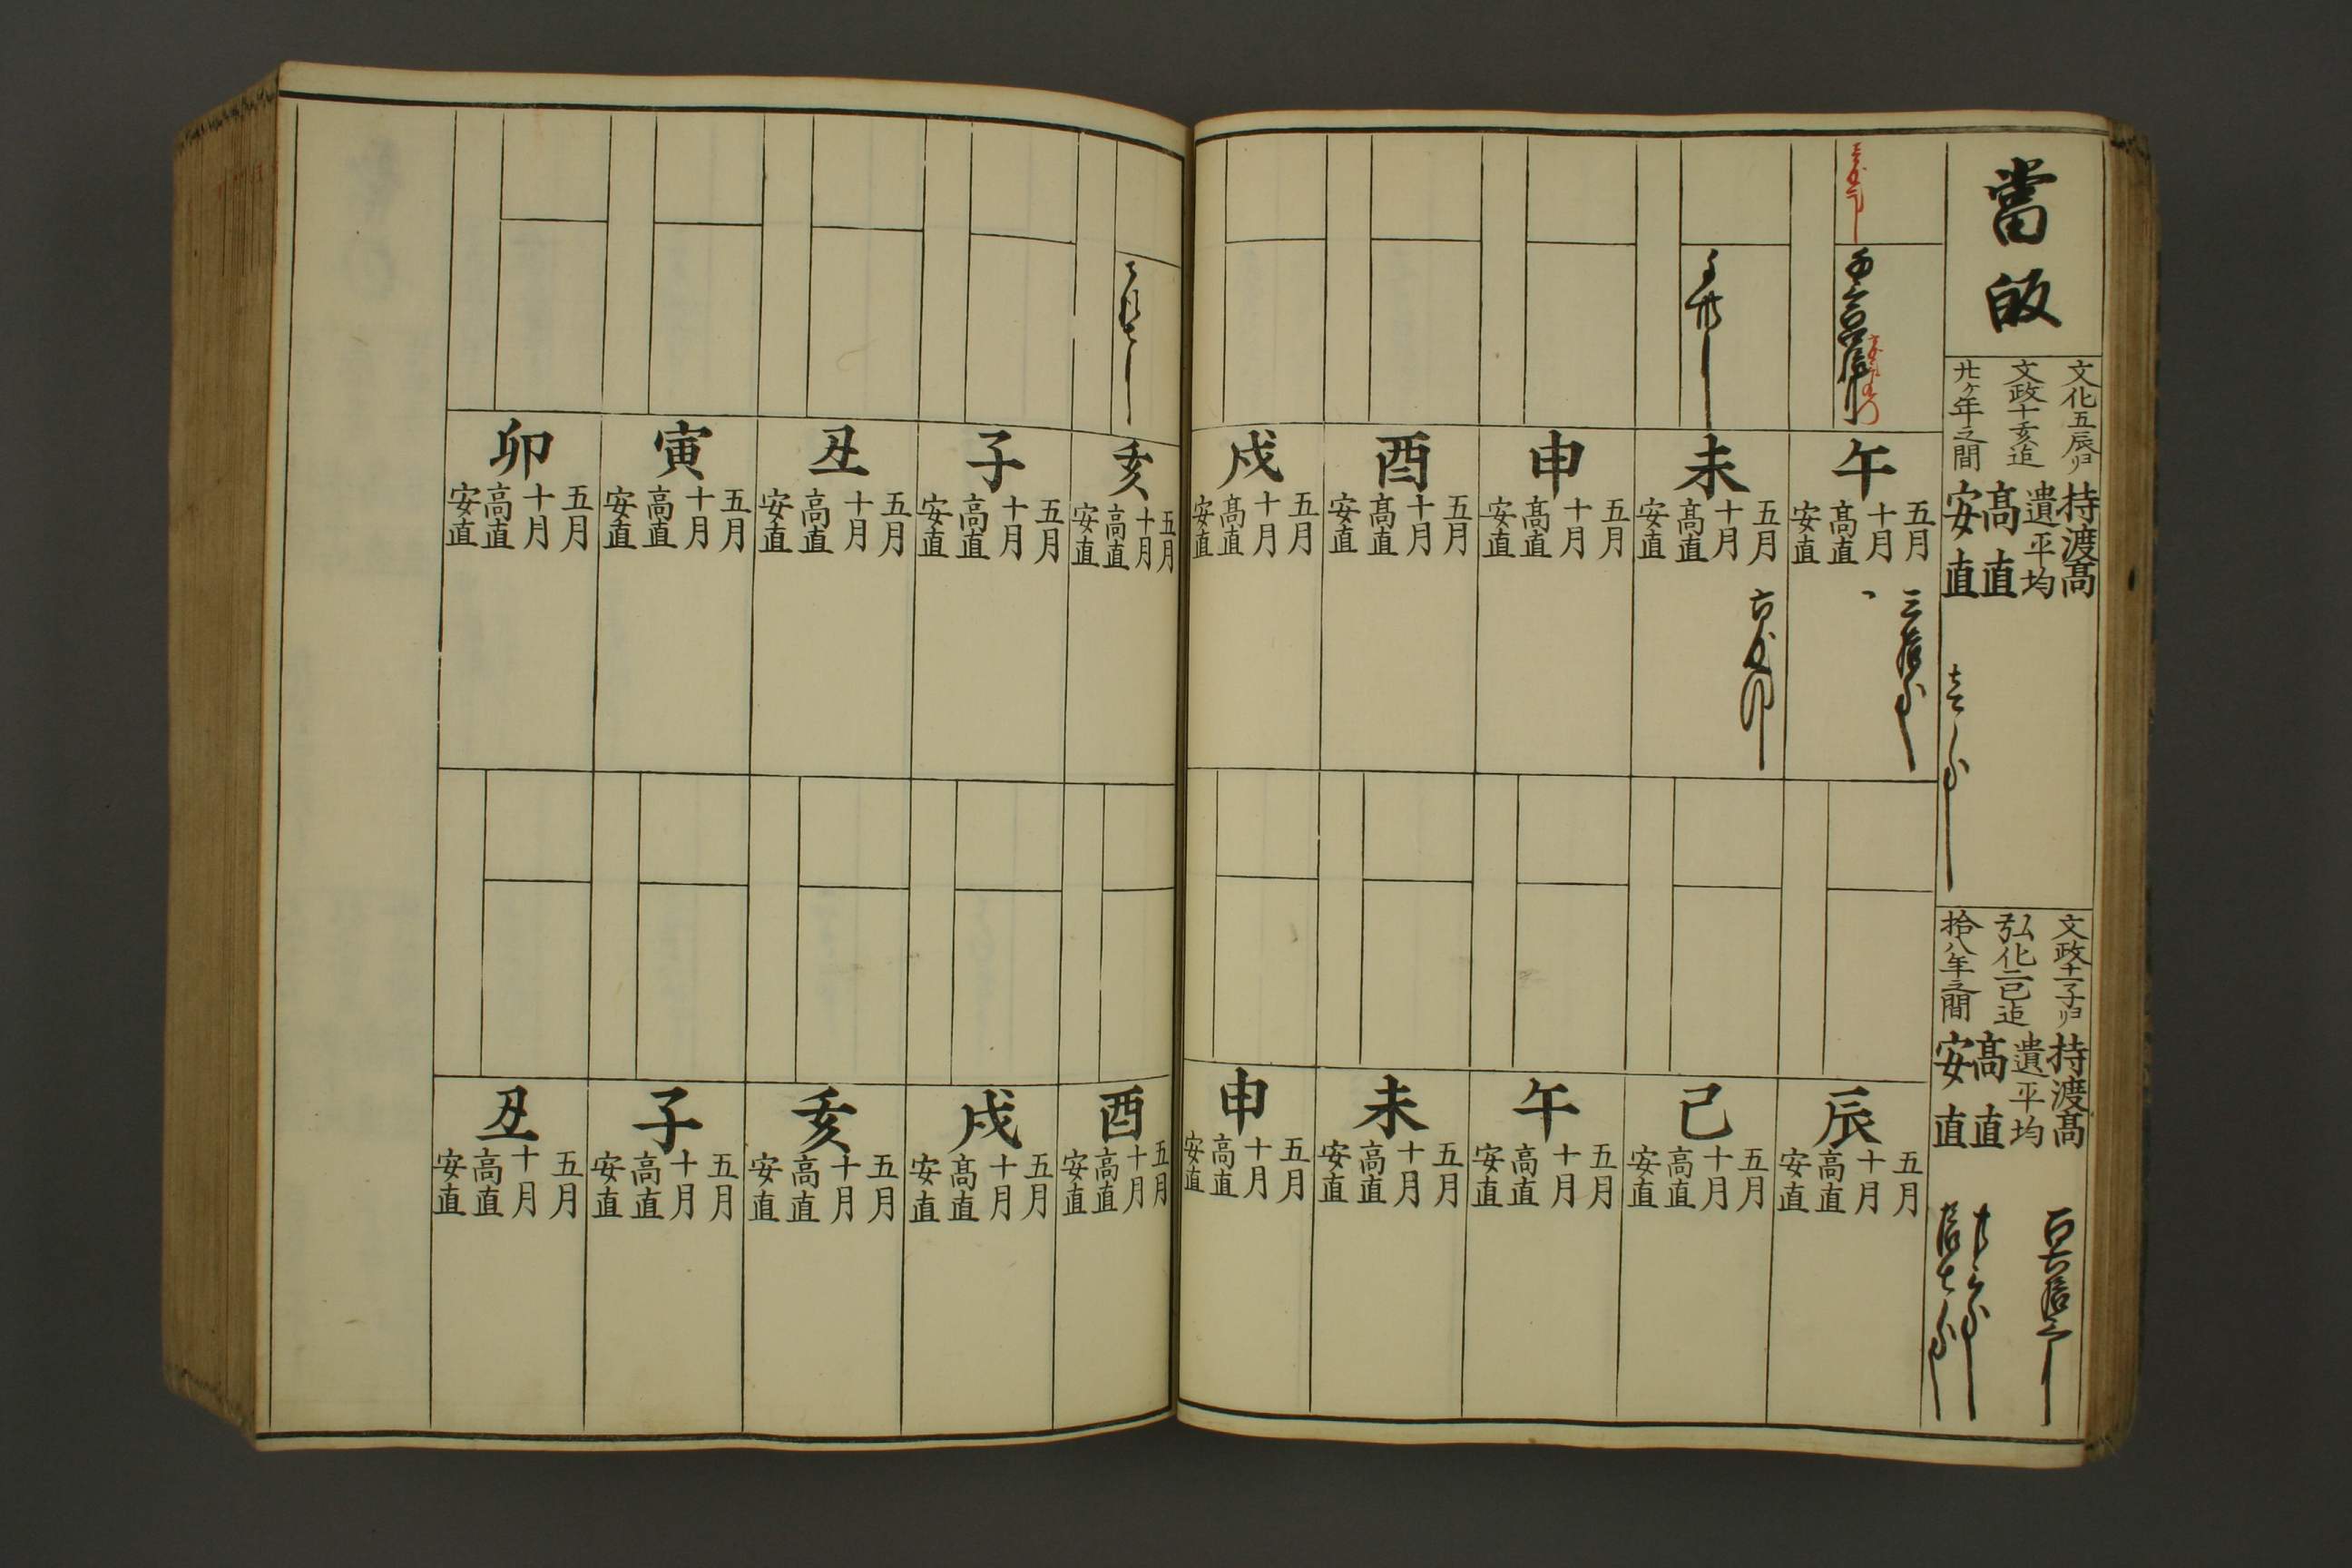 當皈
文化五辰ゟ
文政十亥迠
廿ヶ年之間
持渡髙
遣平均
髙直
安直
文政十一子ゟ
弘化二巳迠
拾八年之間
持渡髙
遣平均
髙直
安直
午
五月
十月
髙直
安直
未
五月
十月
髙直
安直
申
五月
十月
髙直
安直
酉
五月
十月
髙直
安直
戌
五月
十月
髙直
安直
辰
五月
十月
高直
安直
巳
五月
十月
高直
安直
午
五月
十月
高直
安直
未
五月
十月
高直
安直
申
五月
十月
高直
安直
亥
五月
十月
高直
安直
子
五月
十月
高直
安直
丑
五月
十月
高直
安直
寅
五月
十月
高直
安直
卯
五月
十月
高直
安直
酉
五月
十月
高直
安直
戌
五月
十月
髙直
安直
亥
五月
十月
高直
安直
子
五月
十月
高直
安直
丑
五月
十月
高直
安直